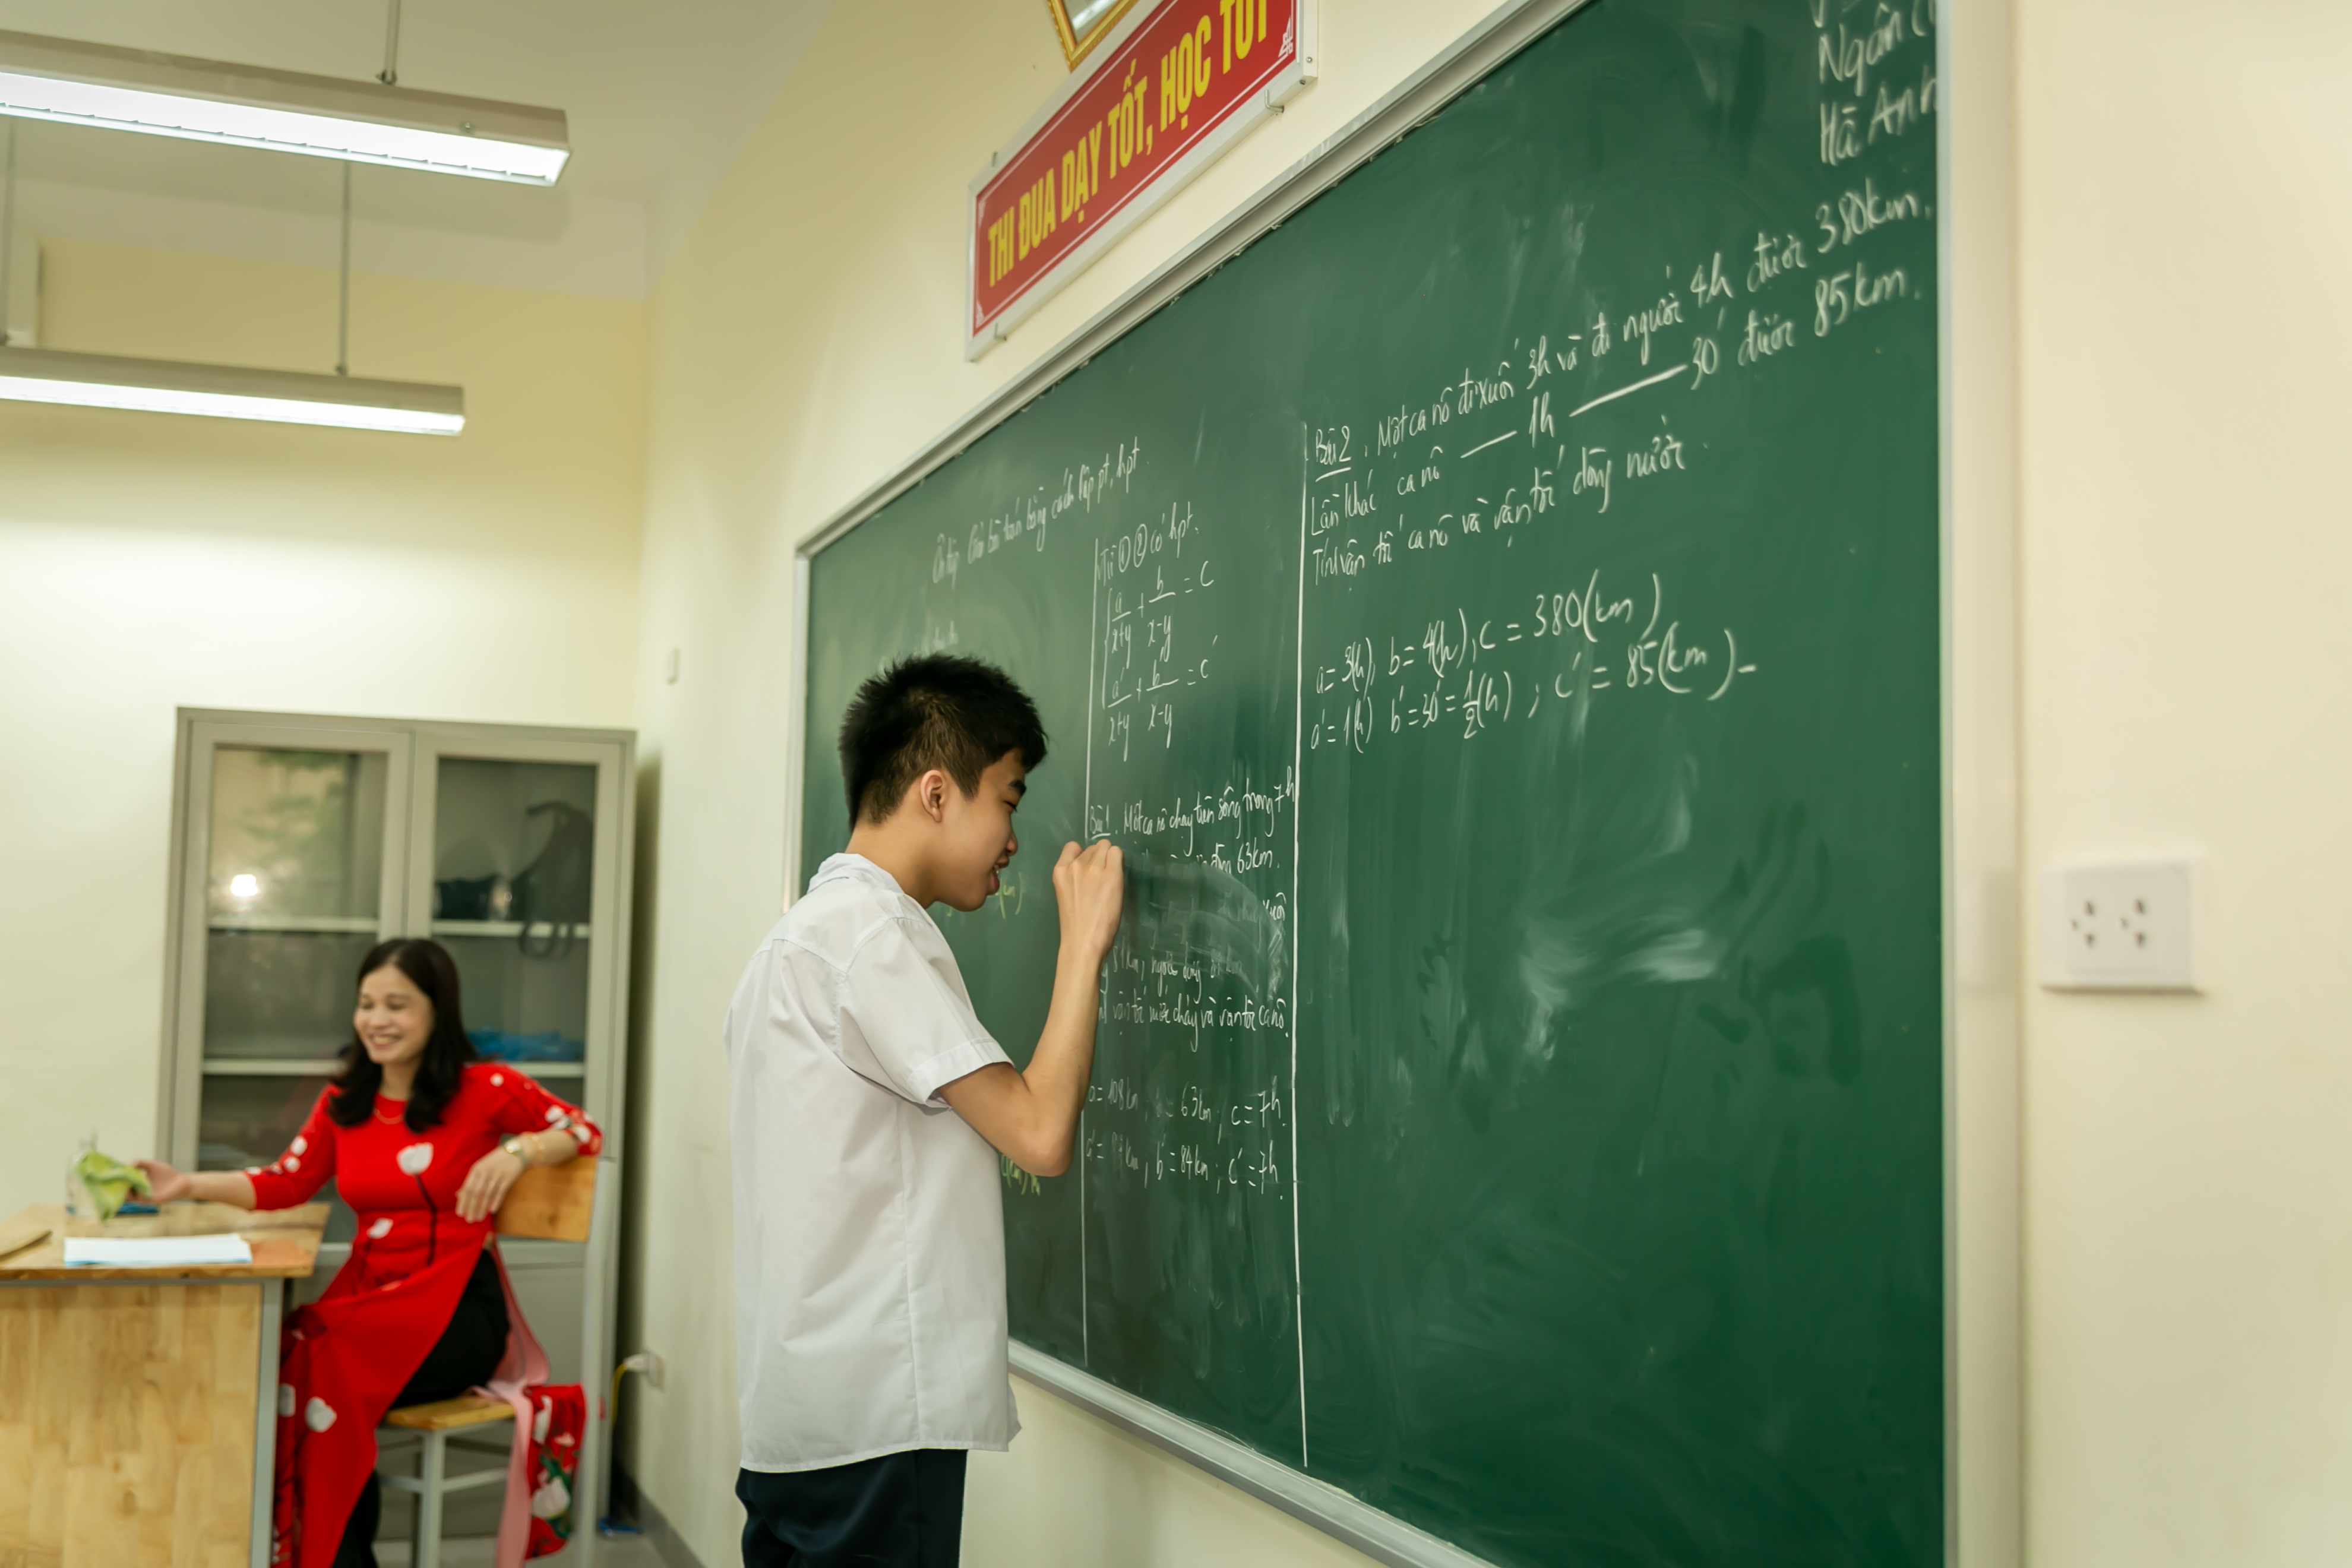 THI ĐUA DẠY TỐT, HỌC TỐT
Ngân
Hà Anh
Ôn tập Giải bài toán bằng cách lập pt, hpt
Từ ① ② có hpt.
a/(x+y) + b/(x-y) = c
a'/(x+y) + b'/(x-y) = c'
Bài 1. Một ca nô chạy trên sông trong 7h
63km.
xuôi
km, ngược dòng
vận tốc nước chảy và vận tốc ca nô.
a = 108km, = 63km, c = 7h.
km, b' = 84km; c' = 7h.
Bài 2. Một ca nô đi xuôi 3h và đi ngược 4h được 380km.
Lần khác ca nô — 1h — 30' được 85km.
Tính vận tốc ca nô và vận tốc dòng nước.
a = 3(h), b = 4(h), c = 380(km)
a' = 1(h) b' = 30' = 1/2(h); c' = 85(km)-